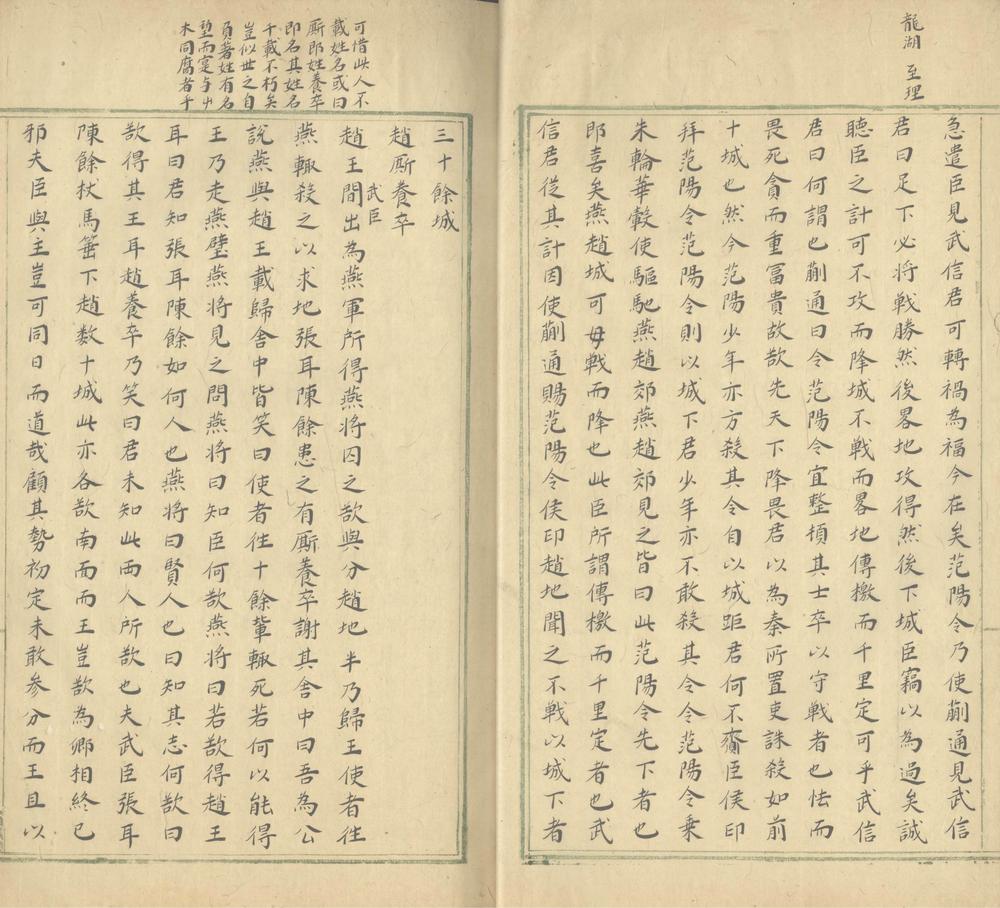 龍湖 至理
急遣臣見武信君可轉禍為福今在矣范陽令乃使蒯通見武信
君曰足下必將戰勝然後畧地攻得然後下城臣竊以為過矣誠
聽臣之計可不攻而降城不戰而畧地傳檄而千里定可乎武信
君曰何謂也蒯通曰令范陽令宜整頓其士卒以守戰者也怯而
畏死貪而重冨貴故欲先天下降畏君以為秦所置吏誅殺如前
十城也然今范陽少年亦方殺其令自以城距君何不賫臣侯印
拜范陽令范陽令則以城下君少年亦不敢殺其令令范陽令乗
朱輪華轂使驅馳燕趙郊燕趙郊見之皆曰此范陽令先下者也
即喜矣燕趙城可毋戰而降也此臣所謂傳檄而千里定者也武
信君從其計因使蒯通賜范陽令侯印趙地聞之不戰以城下者
可惜此人不
載姓名或曰
厮即姓養卒
即名其姓名
千載不朽矣
豈似世之自
負著姓有名
望而寔与屮
木同腐者乎
三十餘城
趙厮養卒
趙王武臣間出為燕軍所得燕將囚之欲與分趙地半乃歸王使者往
燕輒殺之以求地張耳陳餘患之有厮養卒謝其舍中曰吾為公
說燕與趙王載歸舍中皆笑曰使者徃十餘軰輒死若何以能得
王乃走燕壁燕將見之問燕將曰知臣何欲燕將曰若欲得趙王
耳曰君知張耳陳餘如何人也燕將曰賢人也曰知其志何欲曰
欲得其王耳趙養卒乃笑曰君未知此两人所欲也夫武臣張耳
陳餘杖馬箠下趙数十城此亦各欲南面而王豈欲為卿相終已
邪夫臣與主豈可同日而道哉顧其勢初定未敢参分而王且以